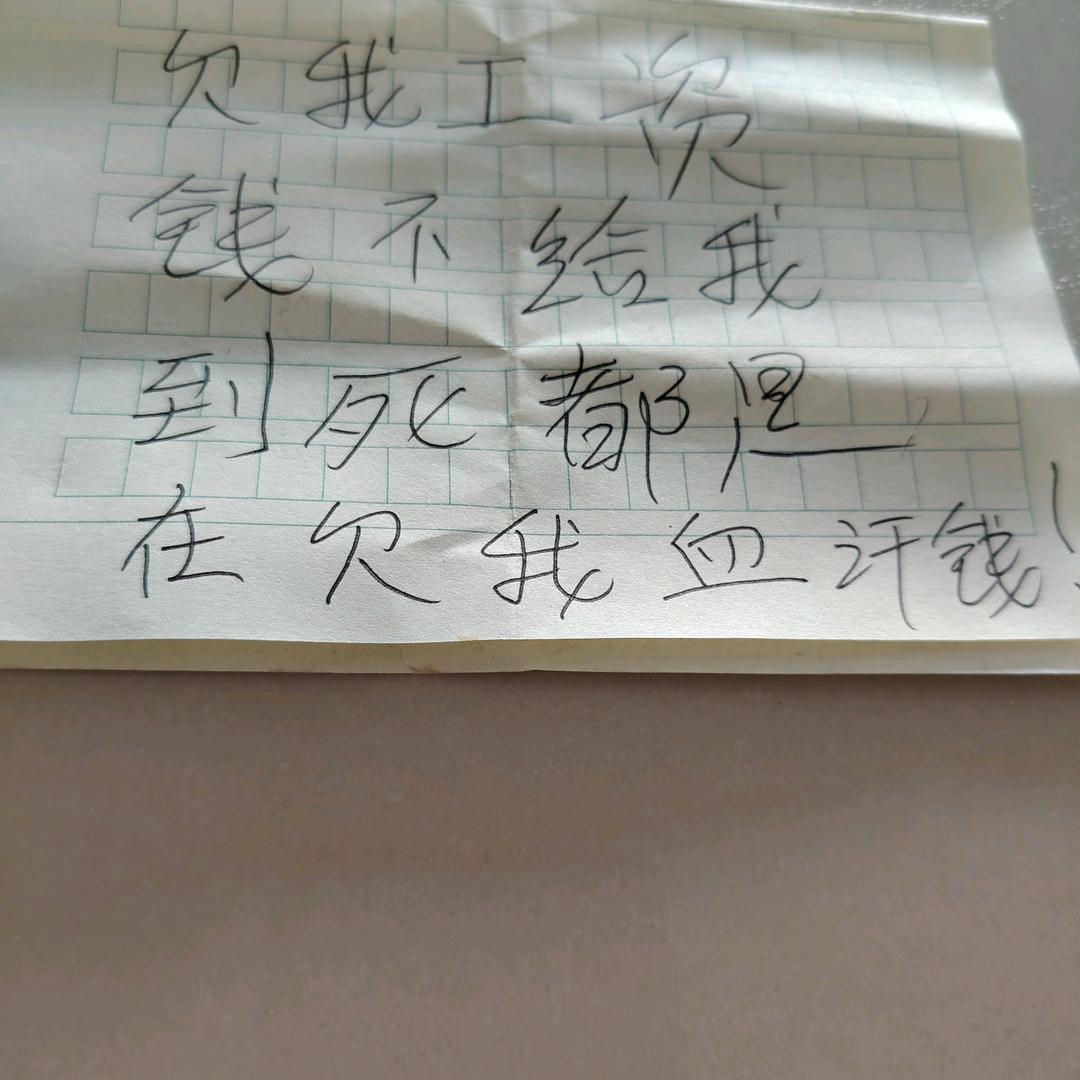 欠我工资
钱不给我
到死都还
在欠我血汗钱!